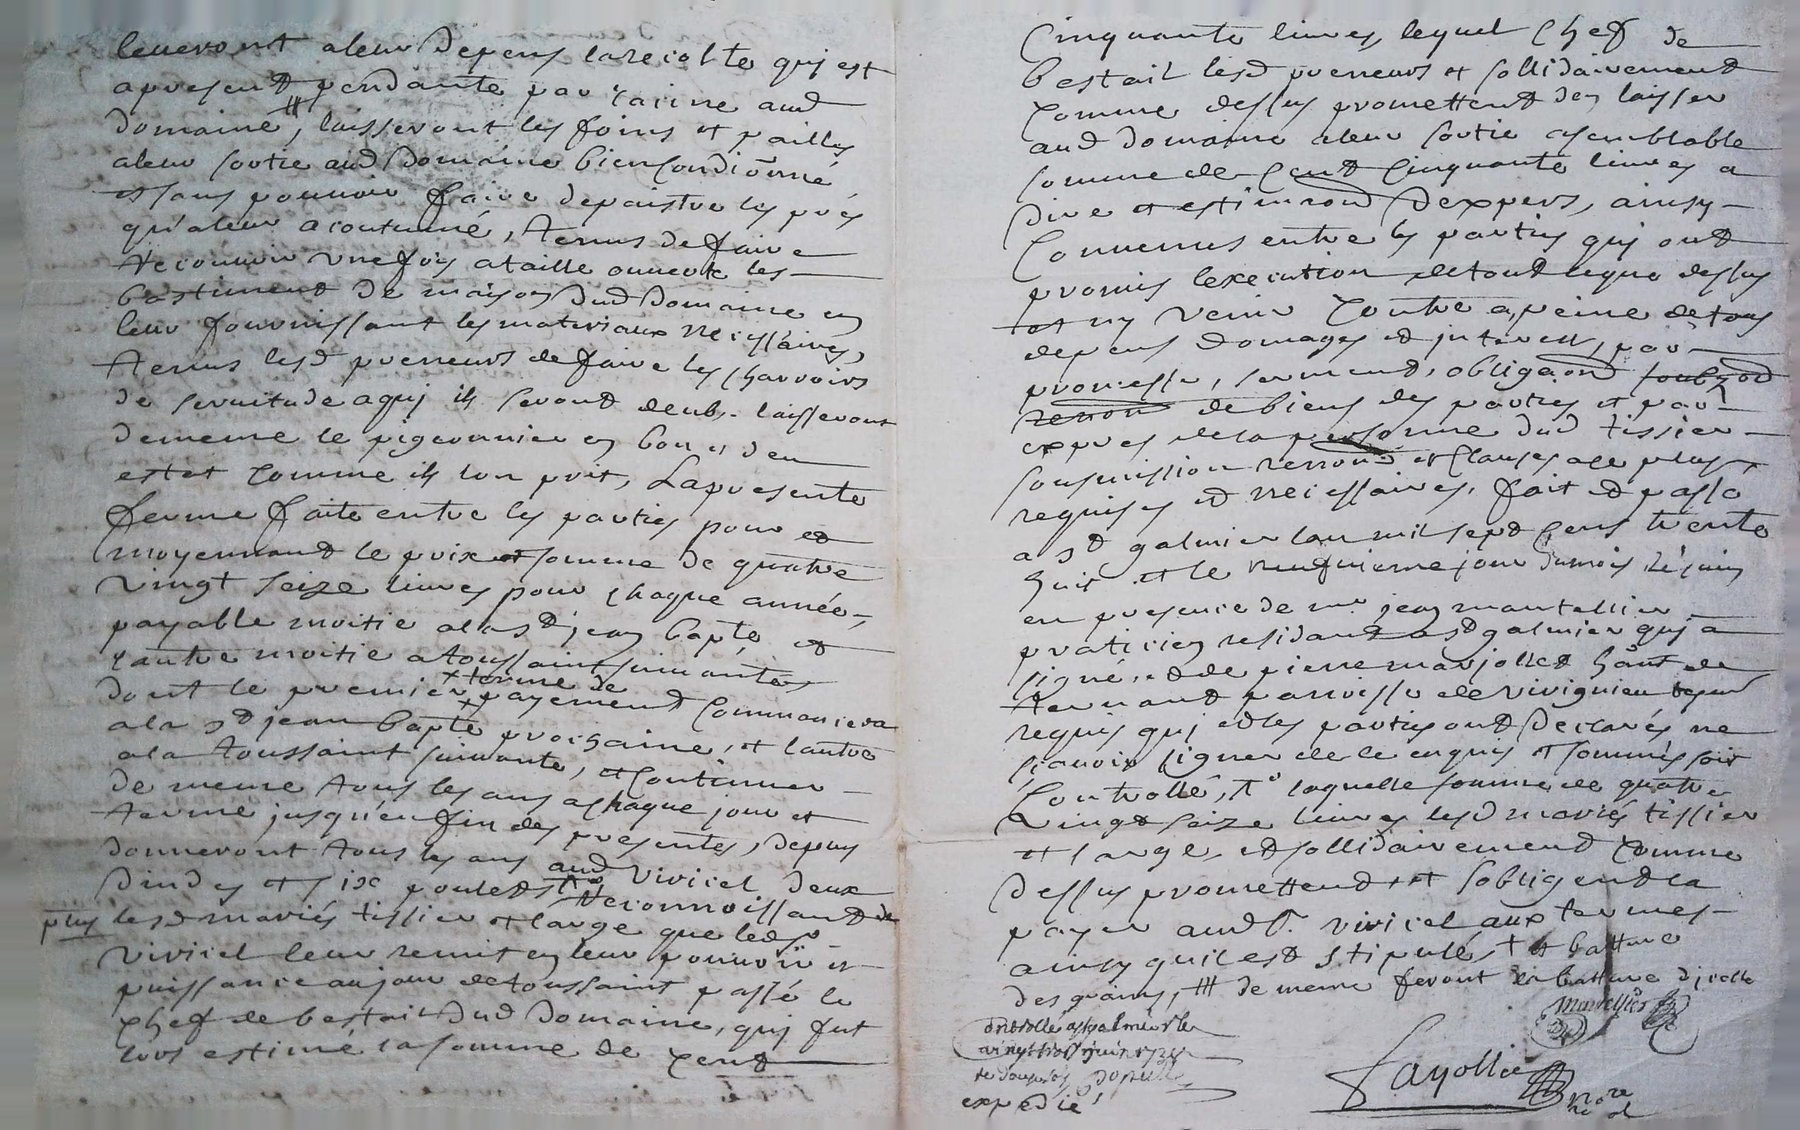 leveront a leur depens la recolte quj est
apresent pendante par racine aud
domaine, # laisseront les foins et pailles
a leur sortie aud domaine bien condiōnné
et sans pouvoir faire depaistre les prés
qu'a leur acoutumé, tenus de faire
recouvrir une fois a taille ouverte les
bastiment de maison dud domaine en
leur fournissant les materiaux necessaires,
tenus lesd preneurs de faire les charroirs
de servitude a quj ils seront deubs. laisseront
de meme le pigeonnier en bon et deu
estat comme ils lon prit, La presente
ferme faite entre les parties pour et
moyennand le prix et somme de quatre
vingt seize livres pour chaque année,
payable moitie a la st jean bapte et
l'autre moitie a toussaint suivantes
dont le premier + terme de payement commancera
a la st jean bapte prochaine, et l'autre
a la toussaint suivante, et continuer
de meme tous les ans a chaque jour et
terme jusqu'en fin des presentes, depuis
donneront tous les ans aud viricel deux
dindes et six poulets Reconnoissant de
plus lesd mariés tissier et large que ledt sr
viricel leur remit en leur pouvoir et
puissance au jour de toussaint passé le
chef de bestail dud domaine, quj fut
lors estimé la somme de cent
Cinquante livres, lequel chef de
bestail lesd preneurs et sollidairement
comme dessus promettent den laisser
aud domaine a leur sortie a semblable
somme de cent cinquante livres a
dire et estimaōn dexpers, ainsy
Convenus entre les parties quj ont
promis lexecution de tout ce que dessus
et ny venir contre a peine de tous
depens domages et jnterest, par
promesse, serment, obligaōn
de biens des parties et par
expres de la personne dud tissier
sousmission renonō et clauses a ce plus
requises et necessaires, fait et passé
a st galmier lan mil sept cens trente
huit et le neufvieme jour du mois de juin
en presence de mr jean mantellier
praticien residant a st galmier quj a
signé, et de pierre marjollet hānt de
parroisse de virignieu
requis quj et les parties ont declarés ne
scavoir signer de ce enquis et sommés soit
Controllé, to laquelle somme de quatre
vingt seize livres lesd mariés tissier
et large, et sollidairement comme
dessus promettent et s'obligent la
payer aud sr viricel aux termes
ainsy quil est stipulé, + et batture
des grains, # de meme feront la batture dicelle
mantellier
Controllé a st galmier le
vingt trois juin 1738
expedié
Fayolle
nore
rl